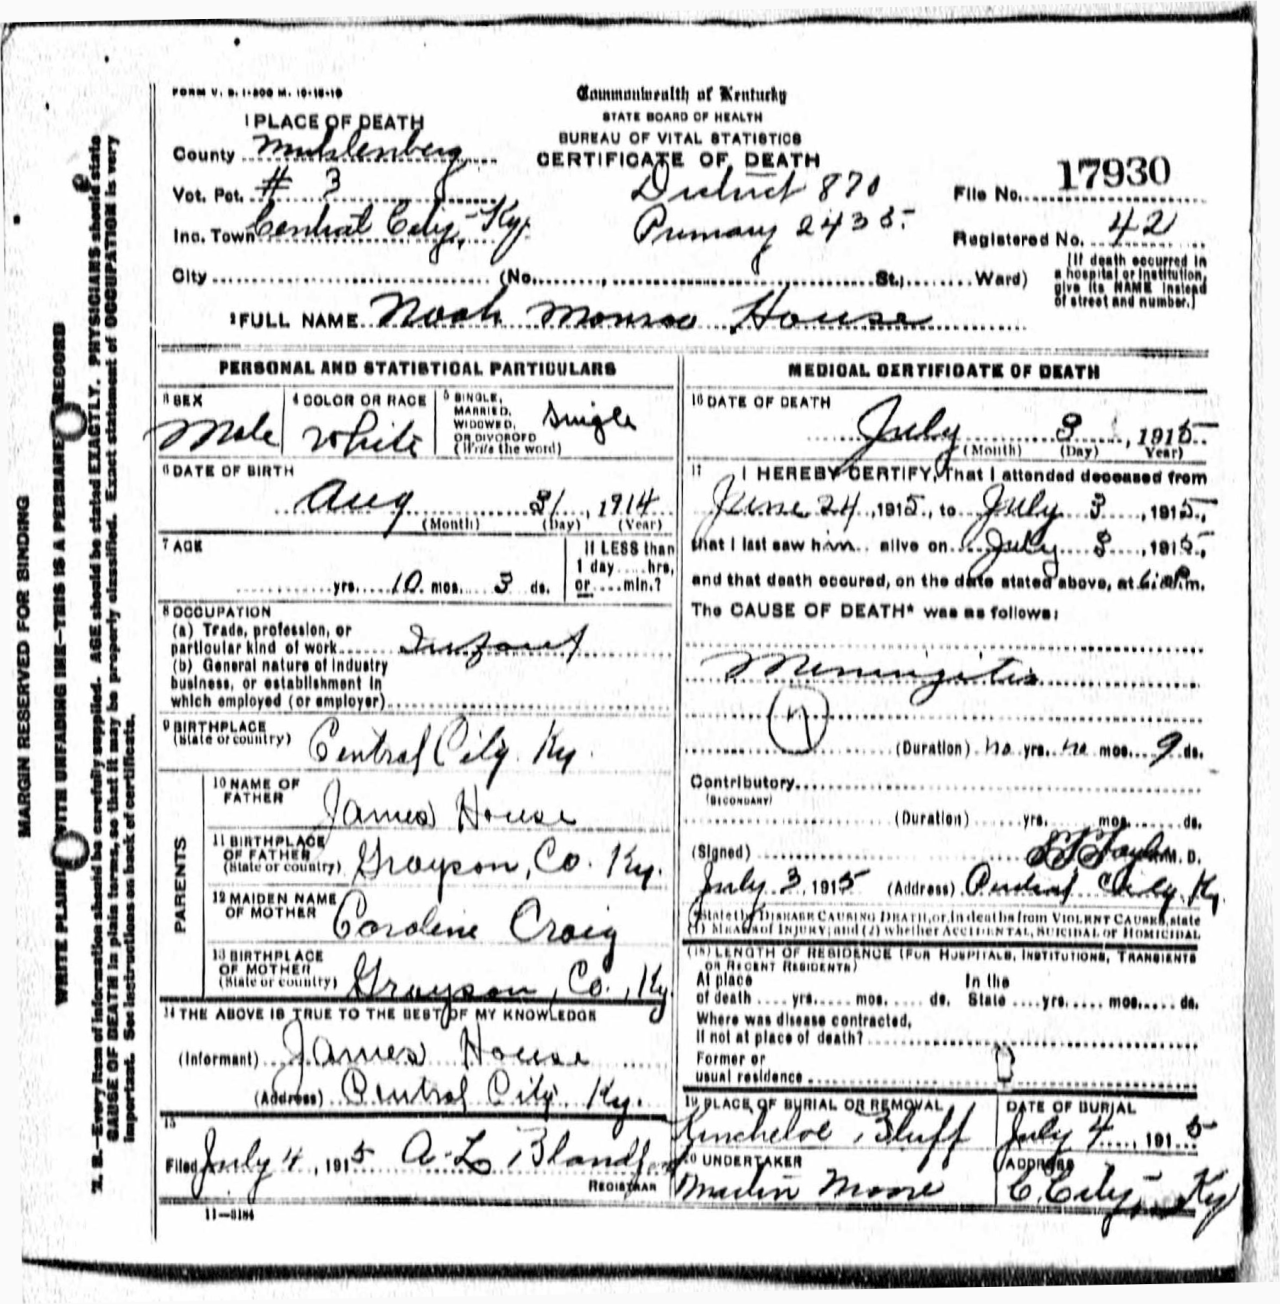 FORM V. S. 1-500 M. 10-18-10
Commonwealth of Kentucky
STATE BOARD OF HEALTH
BUREAU OF VITAL STATISTICS
CERTIFICATE OF DEATH
1 PLACE OF DEATH
County Muhlenberg
Vot. Pct. # 3
Inc. Town Central City, Ky.
District 870
Primary 2435
File No. 17930
Registered No. 42
City (No. St.; Ward)
(If death occurred in
a hospital or institution,
give its NAME instead
of street and number.)
2 FULL NAME Noah Monroe House
PERSONAL AND STATISTICAL PARTICULARS
3 SEX
Male
4 COLOR OR RACE
White
5 SINGLE,
MARRIED,
WIDOWED,
OR DIVORCED
(Write the word)
Single
6 DATE OF BIRTH
Aug 31, 1914
(Month) (Day) (Year)
7 AGE
yrs. 10 mos. 3 ds.
If LESS than
1 day hrs.
or min.?
8 OCCUPATION
(a) Trade, profession, or
particular kind of work Infant
(b) General nature of industry
business, or establishment in
which employed (or employer)
9 BIRTHPLACE
(State or country) Central City Ky.
PARENTS
10 NAME OF
FATHER James House
11 BIRTHPLACE
OF FATHER
(State or country) Grayson, Co. Ky.
12 MAIDEN NAME
OF MOTHER Caroline Craig
13 BIRTHPLACE
OF MOTHER
(State or country) Grayson, Co., Ky.
14 THE ABOVE IS TRUE TO THE BEST OF MY KNOWLEDGE
(Informant) James House
(Address) Central City Ky.
15
Filed July 4, 1915 A. L. Blandford
REGISTRAR
11-3184
MEDICAL CERTIFICATE OF DEATH
16 DATE OF DEATH
July 3, 1915
(Month) (Day) (Year)
17 I HEREBY CERTIFY, That I attended deceased from
June 24, 1915, to July 3, 1915,
that I last saw him alive on July 3, 1915,
and that death occured, on the date stated above, at m.
The CAUSE OF DEATH* was as follows:
Meningitis
(Duration) no yrs. no mos. 9 ds.
Contributory
(SECONDARY)
(Duration) yrs. mos. ds.
(Signed) Taylor M. D.
July 3, 1915 (Address) Central City Ky.
*State the DISEASE CAUSING DEATH, or, in deaths from VIOLENT CAUSES, state
(1) MEANS OF INJURY; and (2) whether ACCIDENTAL, SUICIDAL or HOMICIDAL
(18) LENGTH OF RESIDENCE (FOR HOSPITALS, INSTITUTIONS, TRANSIENTS
OR RECENT RESIDENTS)
At place In the
of death yrs. mos. ds. State yrs. mos. ds.
Where was disease contracted,
if not at place of death?
Former or
usual residence
19 PLACE OF BURIAL OR REMOVAL
Kincheloe Bluff
DATE OF BURIAL
July 4, 1915
20 UNDERTAKER
Martin Moore
ADDRESS
C. City Ky
MARGIN RESERVED FOR BINDING
WRITE PLAINLY WITH UNFADING INK—THIS IS A PERMANENT RECORD
N. B.—Every item of information should be carefully supplied. AGE should be stated EXACTLY. PHYSICIANS should state
CAUSE OF DEATH in plain terms, so that it may be properly classified. Exact statement of OCCUPATION is very
important. See instructions on back of certificate.